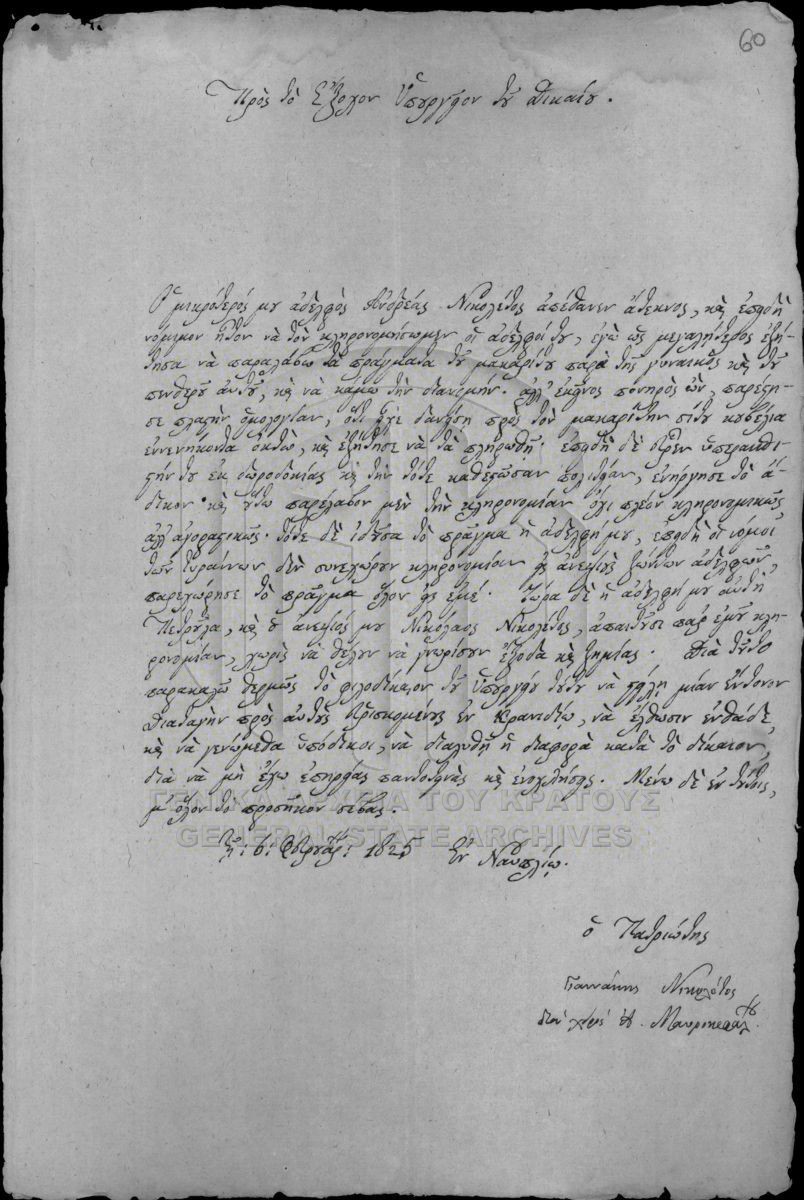 60
Πρὸς τὸ Ἔξοχον Ὑπουργεῖον τοῦ Δικαίου.
Ὁ μικρότερός μου ἀδελφὸς Ἀνδρέας Νικολέτος ἀπέθανεν ἄτεκνος, καὶ ἐπειδὴ
νόμιμον ἦτον νὰ τὸν κληρονομήσωμεν οἱ ἀδελφοί του, ἐγὼ ὡς μεγαλήτερος ἐζή-
τησα νὰ παραλάβω τὰ πράγματα τοῦ μακαρίτου παρὰ τῆς γυναικὸς καὶ τοῦ
πενθεροῦ αὐτοῦ, καὶ νὰ κάμω τὴν διανομήν. ἀλλ' ἐκεῖνος πονηρὸς ὢν, παρέστη-
σε πλαστὴν ὁμολογίαν, ὅτι εἶχε δανείσῃ πρὸς τὸν μακαρίτην
ἐννενήκοντα ὀκτὼ, καὶ ἐζήτησε νὰ τὰ πληρωθῇ. ἐπειδὴ δὲ εὗρεν ὑπερασπι-
στήν του ἐκ δωροδοκίας καὶ τὴν τότε καθεστῶσαν πολιτείαν, ἐνήργησε τὸ ἄ-
δικον· καὶ οὕτω παρέλαβον μὲν τὴν κληρονομίαν ὄχι πλέον κληρονομικῶς,
ἀλλ' ἀγοραστικῶς. τότε δὲ ἰδοῦσα τὸ πρᾶγμα ἡ ἀδελφή μου, ἐπειδὴ οἱ νόμοι
τῶν τυράννων δὲν συνεχώρουν κληρονομίαν εἰς ἀνεψιοὺς ζώντων ἀδελφῶν,
παρεχώρησε τὸ πρᾶγμα ὅλον εἰς ἐμέ. Τώρα δὲ ἡ ἀδελφή μου αὐτὴ
Πετροῦλα, καὶ ὁ ἀνεψιός μου Νικόλαος Νικολέτος, ἀπαιτοῦσι παρ' ἐμοῦ κλη-
ρονομίαν, χωρὶς νὰ θέλουν νὰ γνωρίσουν ἔξοδα καὶ ζημίας. Διὰ τοῦτο
παρακαλῶ θερμῶς τὸ φιλοδίκαιον τοῦ Ὑπουργείου τούτου νὰ στείλῃ μίαν ἔντονον
διαταγὴν πρὸς αὐτοὺς εὑρισκομένους ἐν Κρανιδίῳ, νὰ ἔλθωσιν ἐνθάδε,
καὶ νὰ γενώμεθα ὑπόδικοι, νὰ διαλυθῇ ἡ διαφορὰ κατὰ τὸ δίκαιον,
διὰ νὰ μὴ ἔχω ἐπηρείας παντοτεινὰς καὶ ἐνοχλήσεις. Μένω δὲ ἐν τούτοις,
μ' ὅλον τὸ προσῆκον σέβας.
Τῇ: 6: Φεβρουαρ: 1825 Ἐν Ναυπλίῳ.
ὁ Πατριώτης
Γιαννάκης Νικολέτος
διὰ χειρὸς
ΓΕΝΙΚΑ ΑΡΧΕΙΑ ΤΟΥ ΚΡΑΤΟΥΣ
GENERAL STATE ARCHIVES